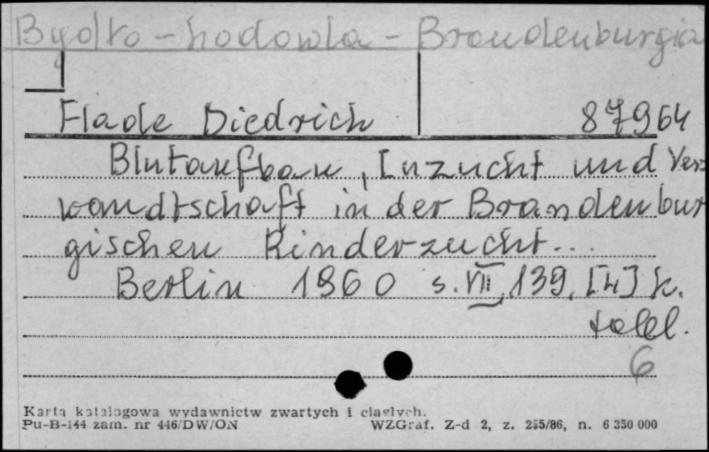 Bydło - hodowla - Brandenburgia
Flade Diedrich 87964
Blutaufbau, Inzucht und Ver=
wandtschaft in der Brandenbur
gischen Rinderzucht...
Berlin 1960 s. VII, 139, [4] k.
tabl.
6
Karta katalogowa wydawnictw zwartych i ciągłych.
Pu-B-144 zam. nr 446/DW/ON WZGraf. Z-d 2, z. 255/86, n. 6 350 000